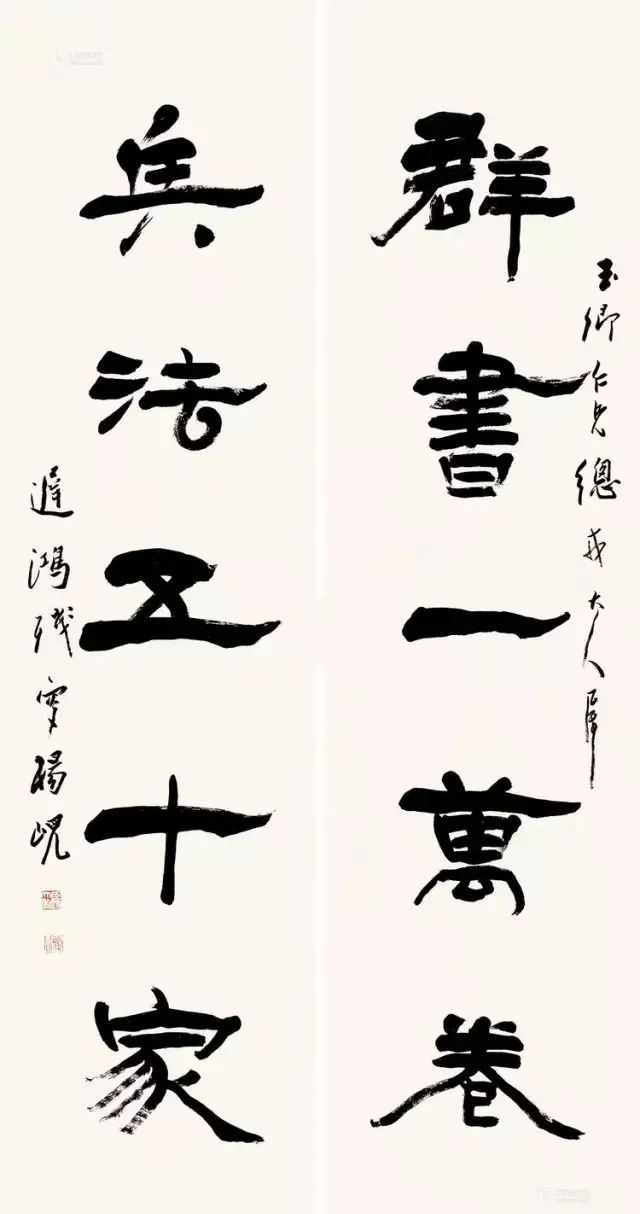 玉卿仁兄總戎大人屬
群書一萬卷
兵法五十家
遲鴻殘叟楊峴